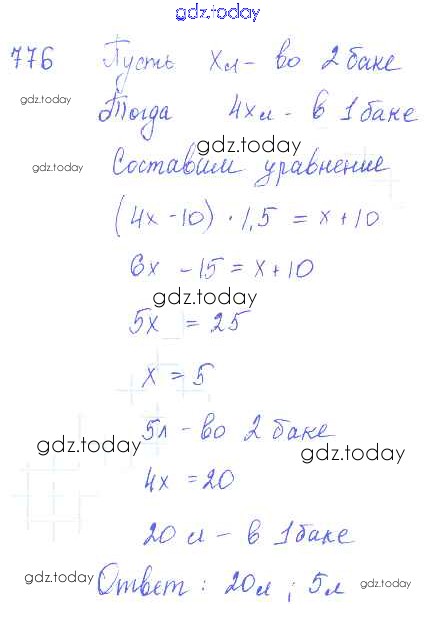 gdz.today
776 Пусть xл - во 2 баке
gdz.today
Тогда 4xл - в 1 баке
gdz.today
gdz.today
Составим уравнение
(4x - 10) · 1,5 = x + 10
6x - 15 = x + 10
gdz.today
5x = 25
x = 5
5л - во 2 баке
gdz.today
gdz.today
4x = 20
20 л - в 1 баке
gdz.today
Ответ: 20л ; 5л
gdz.today